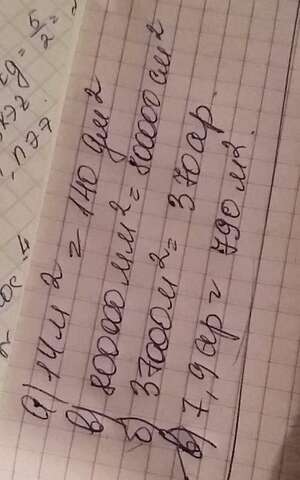 а) 14 м² = 140 дм²
в) 800000 мм² = 800000 см²
б) 37000 м² = 370 ар.
в) 7,9 ар = 790 м².